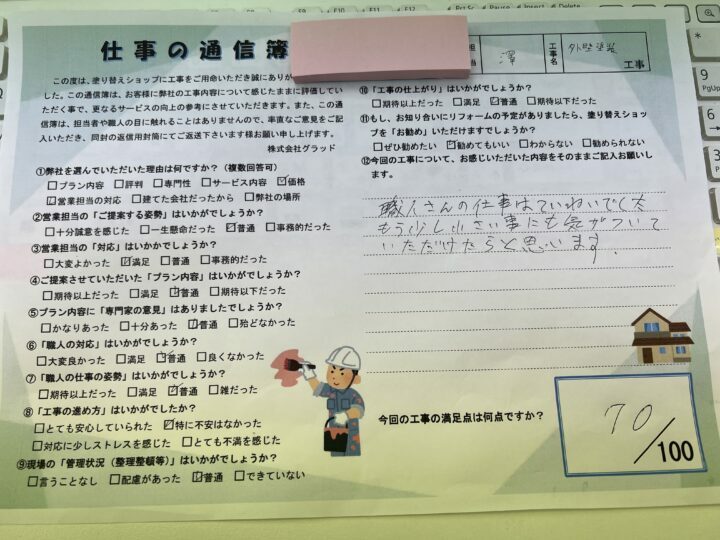 仕事の通信簿
この度は、塗り替えショップに工事をご用命いただき誠にありが
した。この通信簿は、お客様に弊社の工事内容について感じたままに評価してい
ただく事で、更なるサービスの向上の参考にさせていただきます。また、この通
信簿は、担当者や職人の目に触れることはありませんので、率直なご意見をご記
入いただき、同封の返信用封筒にてご返送下さいます様お願い申し上げます。
株式会社グラッド
①弊社を選んでいただいた理由は何ですか？（複数回答可）
□プラン内容 □評判 □専門性 □サービス内容 ☑価格
☑営業担当の対応 □建てた会社だったから □弊社の場所
②営業担当の「ご提案する姿勢」はいかがでしょうか？
□十分誠意を感じた □一生懸命だった ☑普通 □事務的だった
③営業担当の「対応」はいかかでしょうか？
□大変よかった ☑満足 □普通 □事務的だった
④ご提案させていただいた「プラン内容」はいかがでしょうか？
□期待以上だった □満足 ☑普通 □期待以下だった
⑤プラン内容に「専門家の意見」はありましたでしょうか？
□かなりあった □十分あった ☑普通 □殆どなかった
⑥「職人の対応」はいかがでしょうか？
□大変良かった □満足 ☑普通 □良くなかった
⑦「職人の仕事の姿勢」はいかがでしょうか？
□期待以上だった □満足 ☑普通 □雑だった
⑧「工事の進め方」はいかがでしたか？
□とても安心していられた ☑特に不安はなかった
□対応に少しストレスを感じた □とても不満を感じた
⑨現場の「管理状況（整理整頓等）」はいかがでしょうか？
□言うことなし □配慮があった ☑普通 □できていない
担当 澤 工事名 外壁塗装 工事
⑩「工事の仕上がり」はいかがでしょうか？
□期待以上だった □満足 ☑普通 □期待以下だった
⑪もし、お知り合いにリフォームの予定がありましたら、塗り替えショッ
プを「お勧め」いただけますでしょうか？
□ぜひ勧めたい ☑勧めてもいい □わからない □勧められない
⑫今回の工事について、お感じいただいた内容をそのままご記入お願いし
ます。
職人さんの仕事はていねいでした
もう少し小さい事にも気がついて
いただけたらと思います.
今回の工事の満足点は何点ですか？
70/100
Pause
Insert
Delete
9
PgUp